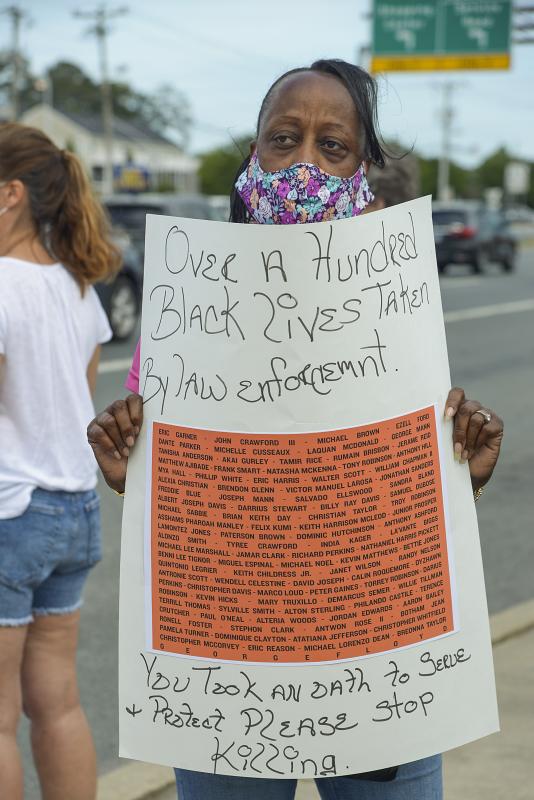 Over A Hundred
Black Lives Taken
By law enforcemnt.
ERIC GARNER - JOHN CRAWFORD III - MICHAEL BROWN - EZELL FORD
DANTE PARKER - MICHELLE CUSSEAUX - LAQUAN MCDONALD - GEORGE MANN
TANISHA ANDERSON - AKAI GURLEY - TAMIR RICE - RUMAIN BRISBON - JERAME REID
MATTHEW AJIBADE - FRANK SMART - NATASHA MCKENNA - TONY ROBINSON - ANTHONY HILL
MYA HALL - PHILLIP WHITE - ERIC HARRIS - WALTER SCOTT - WILLIAM CHAPMAN II
ALEXIA CHRISTIAN - BRENDON GLENN - VICTOR MANUEL LAROSA - JONATHAN SANDERS
FREDDIE BLUE - JOSEPH MANN - SALVADO ELLSWOOD - SANDRA BLAND
ALBERT JOSEPH DAVIS - DARRIUS STEWART - BILLY RAY DAVIS - SAMUEL DUBOSE
MICHAEL SABBIE - BRIAN KEITH DAY - CHRISTIAN TAYLOR - TROY ROBINSON
ASSHAMS PHAROAH MANLEY - FELIX KUMI - KEITH HARRISON MCLEOD - JUNIOR PROSPER
LAMONTEZ JONES - PATERSON BROWN - DOMINIC HUTCHINSON - ANTHONY ASHFORD
ALONZO SMITH - TYREE CRAWFORD - INDIA KAGER - LA'VANTE BIGGS
MICHAEL LEE MARSHALL - JAMAR CLARK - RICHARD PERKINS - NATHANIEL HARRIS PICKETT
BENNI LEE TIGNOR - MIGUEL ESPINAL - MICHAEL NOEL - KEVIN MATTHEWS - BETTIE JONES
QUINTONIO LEGRIER - KEITH CHILDRESS JR. - JANET WILSON - RANDY NELSON
ANTRONIE SCOTT - WENDELL CELESTINE - DAVID JOSEPH - CALIN ROQUEMORE - DYZHAWN
PERKINS - CHRISTOPHER DAVIS - MARCO LOUD - PETER GAINES - TORREY ROBINSON - DARIUS
ROBINSON - KEVIN HICKS - MARY TRUXILLO - DEMARCUS SEMER - WILLIE TILLMAN
TERRILL THOMAS - SYLVILLE SMITH - ALTON STERLING - PHILANDO CASTILE - TERENCE
CRUTCHER - PAUL O'NEAL - ALTERIA WOODS - JORDAN EDWARDS - AARON BAILEY
RONELL FOSTER - STEPHON CLARK - ANTWON ROSE II - BOTHAM JEAN
PAMELA TURNER - DOMINIQUE CLAYTON - ATATIANA JEFFERSON - CHRISTOPHER WHITFIELD
CHRISTOPHER MCCORVEY - ERIC REASON - MICHAEL LORENZO DEAN - BREONNA TAYLOR
G E O R G E F L O Y D
You Took AN oath to Serve
+ Protect Please stop
Killing.